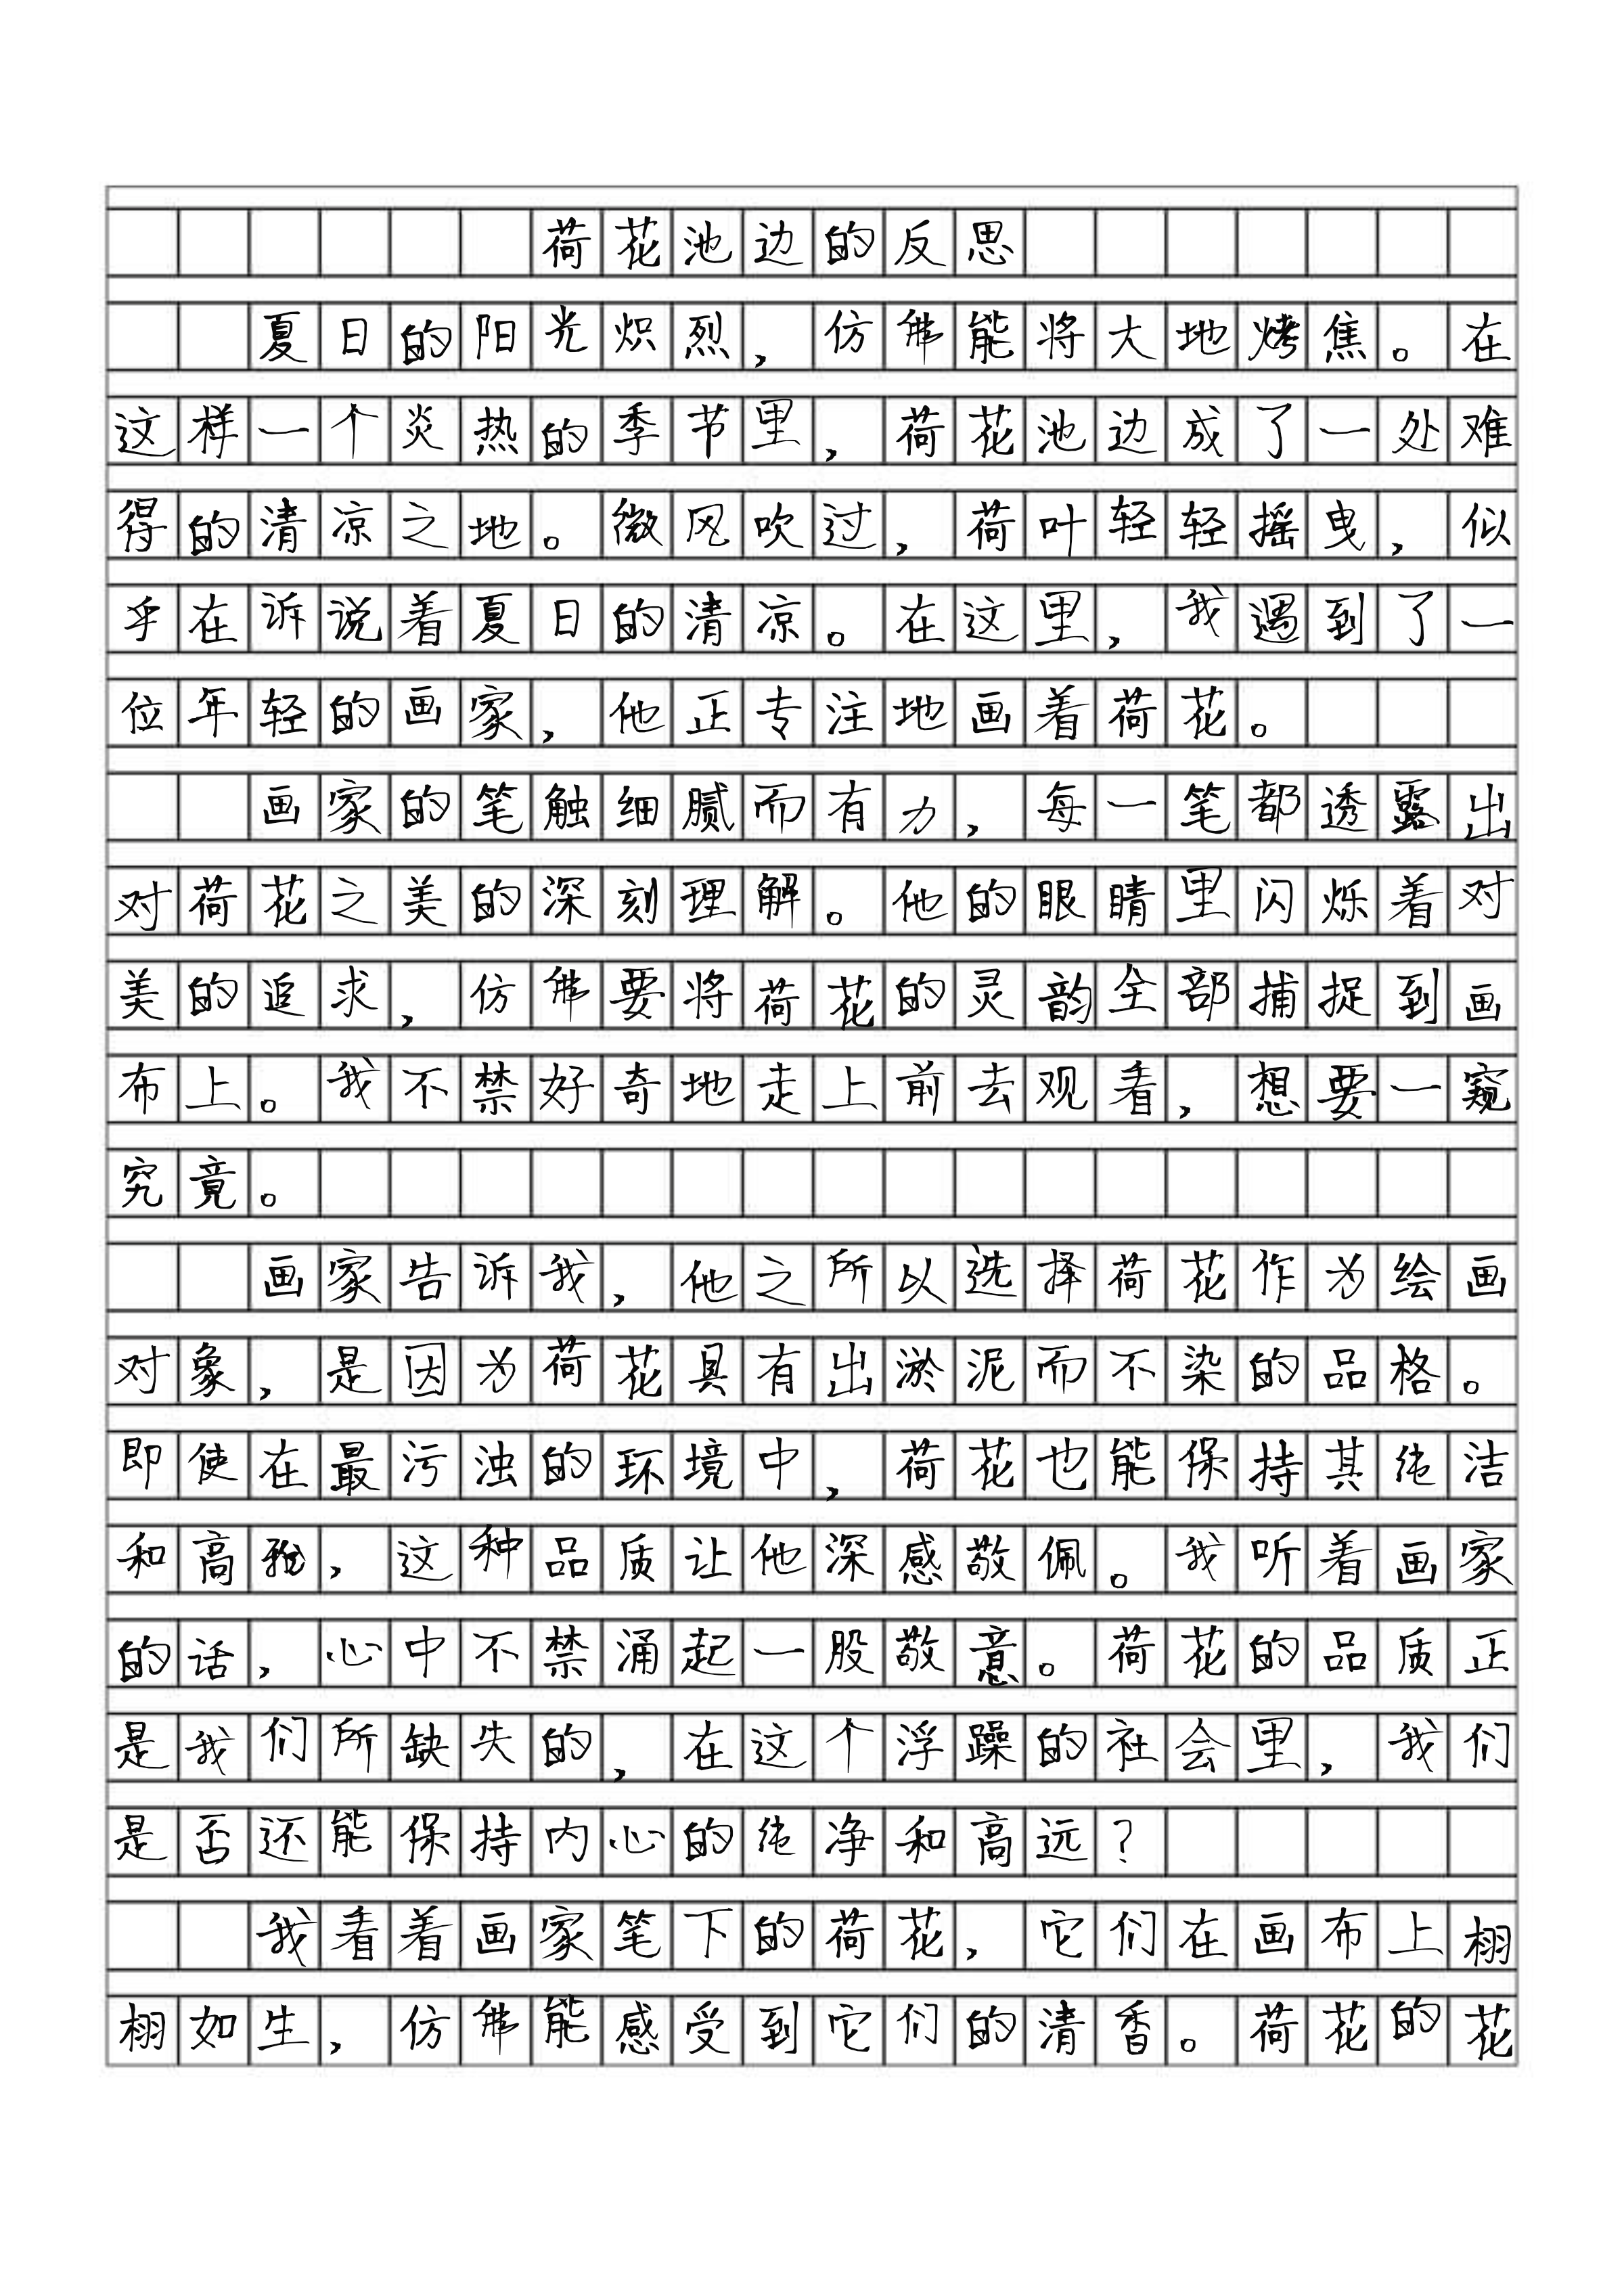 荷花池边的反思
夏日的阳光炽烈，仿佛能将大地烤焦。在
这样一个炎热的季节里，荷花池边成了一处难
得的清凉之地。微风吹过，荷叶轻轻摇曳，似
乎在诉说着夏日的清凉。在这里，我遇到了一
位年轻的画家，他正专注地画着荷花。
画家的笔触细腻而有力，每一笔都透露出
对荷花之美的深刻理解。他的眼睛里闪烁着对
美的追求，仿佛要将荷花的灵韵全部捕捉到画
布上。我不禁好奇地走上前去观看，想要一窥
究竟。
画家告诉我，他之所以选择荷花作为绘画
对象，是因为荷花具有出淤泥而不染的品格。
即使在最污浊的环境中，荷花也能保持其纯洁
和高雅，这种品质让他深感敬佩。我听着画家
的话，心中不禁涌起一股敬意。荷花的品质正
是我们所缺失的，在这个浮躁的社会里，我们
是否还能保持内心的纯净和高远？
我看着画家笔下的荷花，它们在画布上栩
栩如生，仿佛能感受到它们的清香。荷花的花